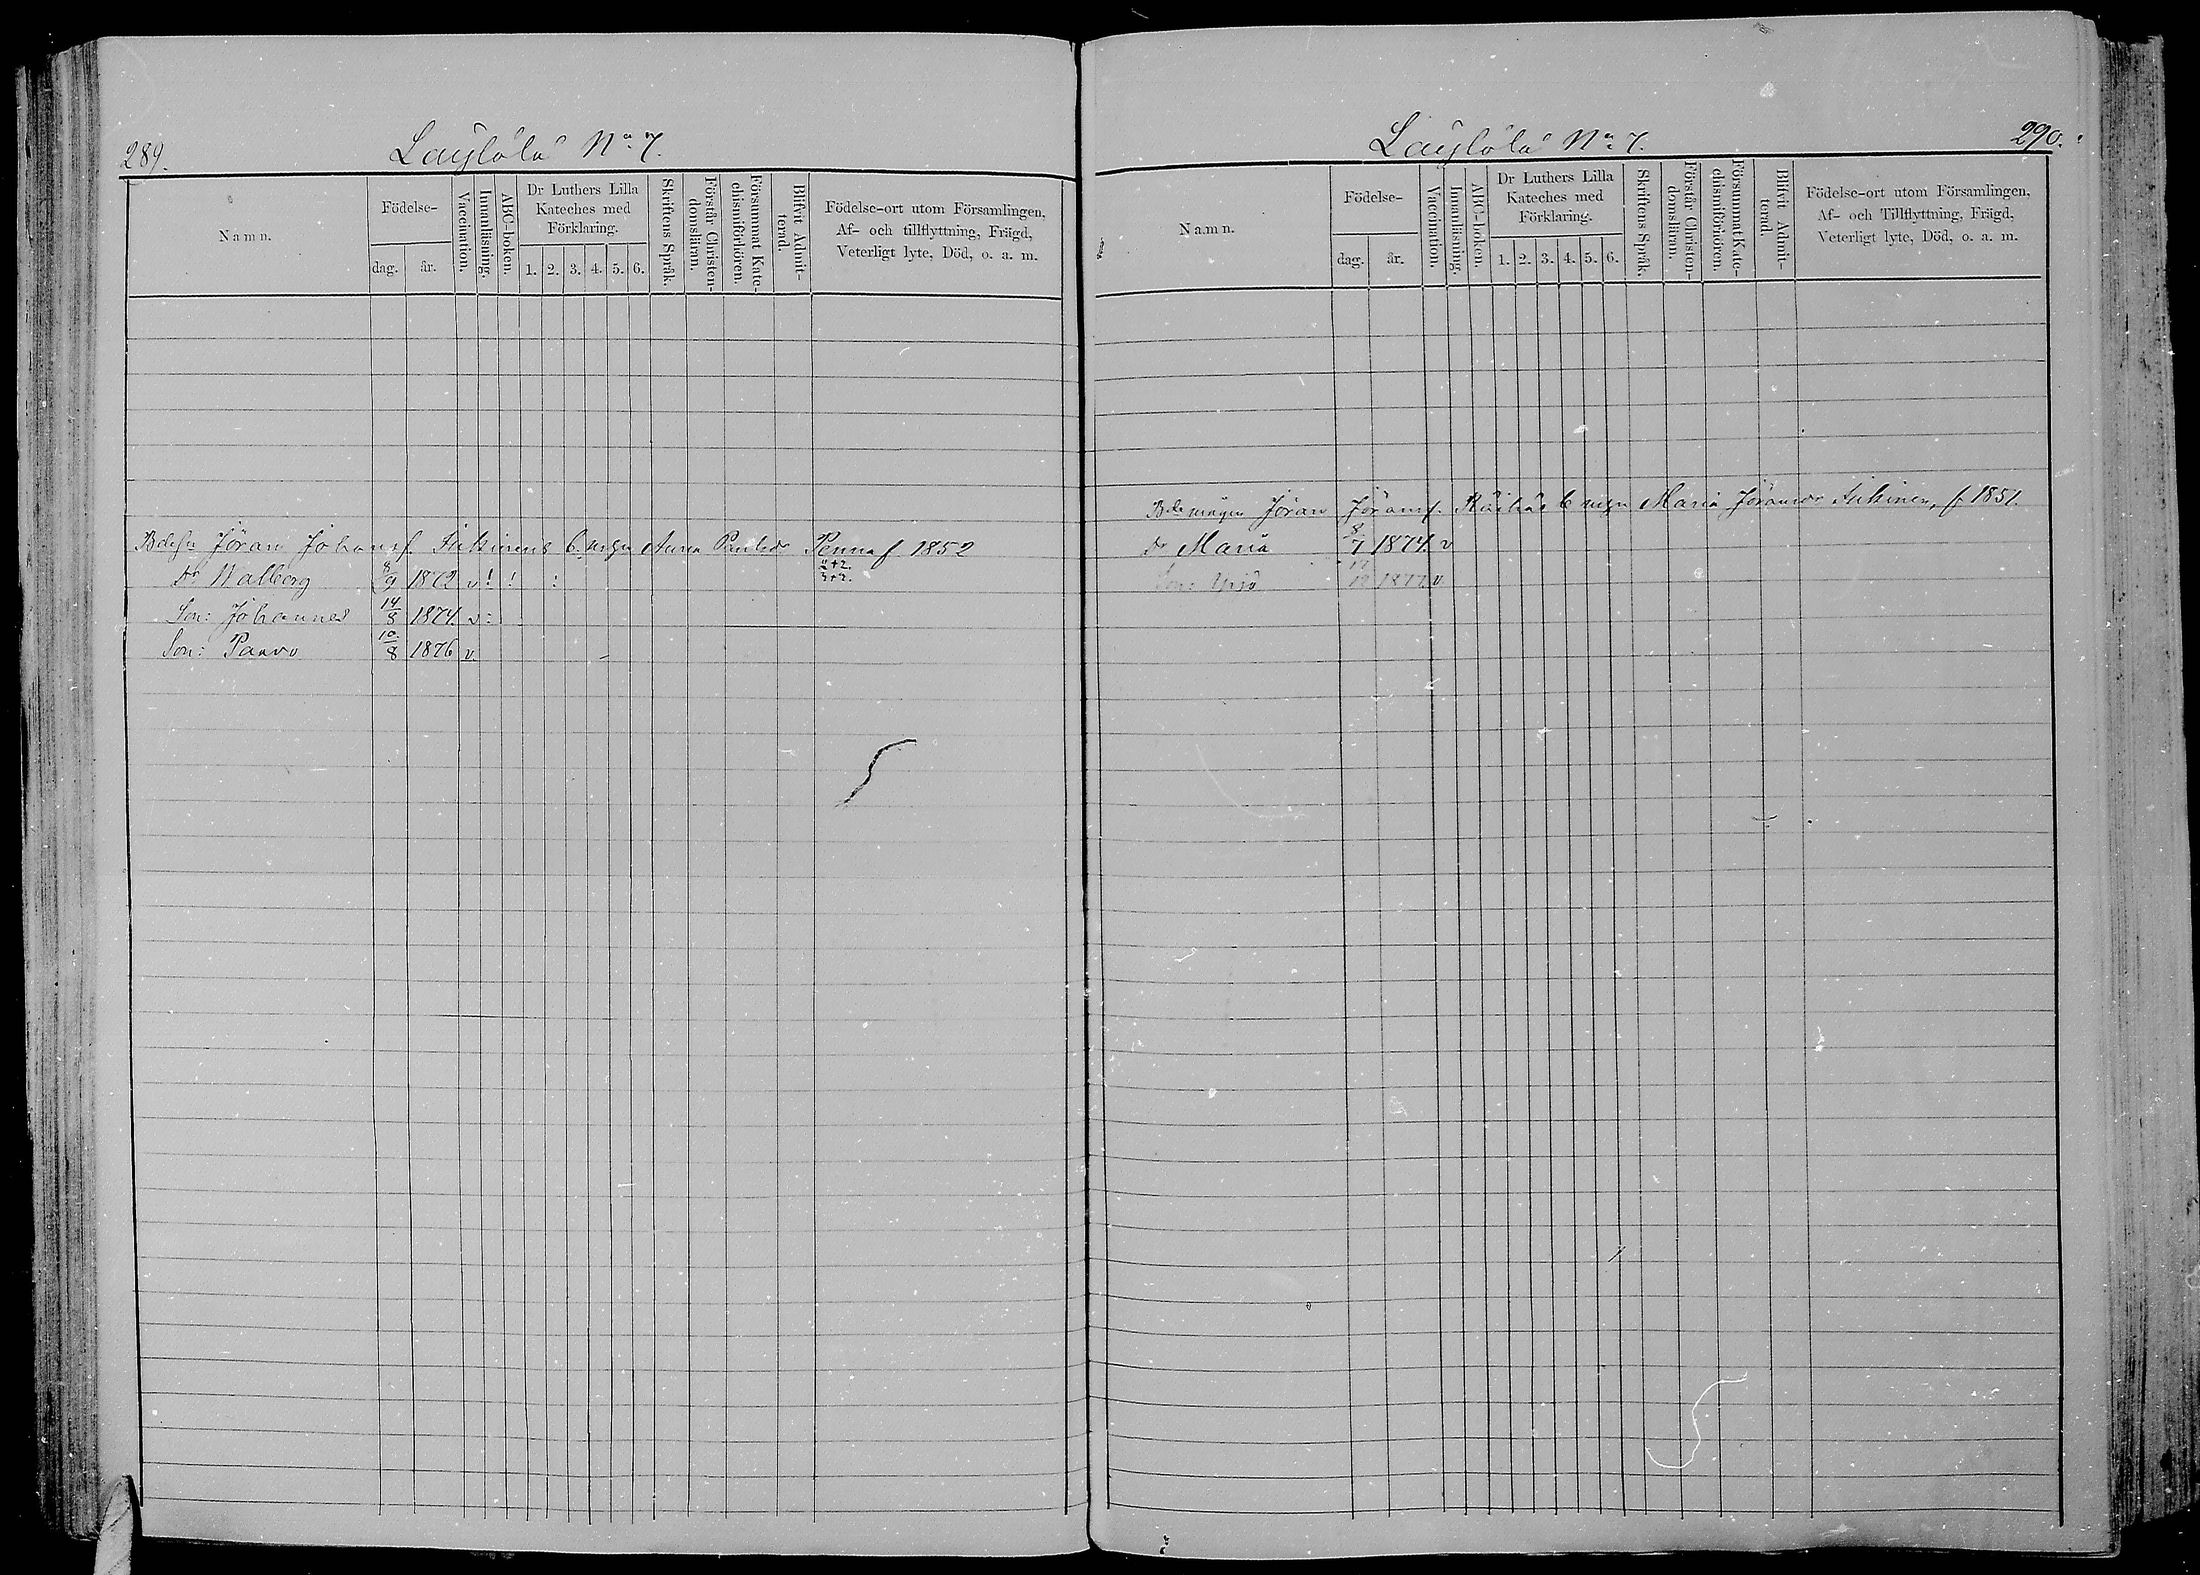 289.
Laylölä No 7.
Namn.
Födelse-
dag. år.
Vaccination.
Innanläsning.
ABC-boken.
Dr Luthers Lilla
Kateches med
Förklaring.
1. 2. 3. 4. 5. 6.
Skriftens Språk.
Förstår Christen-
domsläran.
Försummat Kate-
chismförhören.
Blifvit Admit-
terad.
Födelse-ort utom Församlingen,
Af- och tillflyttning, Frägd,
Veterligt lyte, Död, o. a. m.
Jöran Johansf. Hikinens Anna Paulsdr Penna f 1852
Dr Walborg 8/9 1872 v ! ! :
Son: Johannes 14/8 1874 v :
Son: Paavo 10/8 1876 v.
290.
Laylölä No 7.
Namn.
Födelse-
dag. år.
Vaccination.
Innanläsning.
ABC-boken.
Dr Luthers Lilla
Kateches med
Förklaring.
1. 2. 3. 4. 5. 6.
Skriftens Språk.
Förstår Christen-
domsläran.
Försummat Kate-
chismförhören.
Blifvit Admit-
terad
Födelse-ort utom Församlingen,
Af- och Tillflyttning, Frägd,
Veterligt lyte, Död, o. a. m.
Jöran Jöransf. Maria Jöransdr Hikinen, f 1851.
dr Maria 8/7 1874 v
Son: Yrjö 17/12 1877 v.